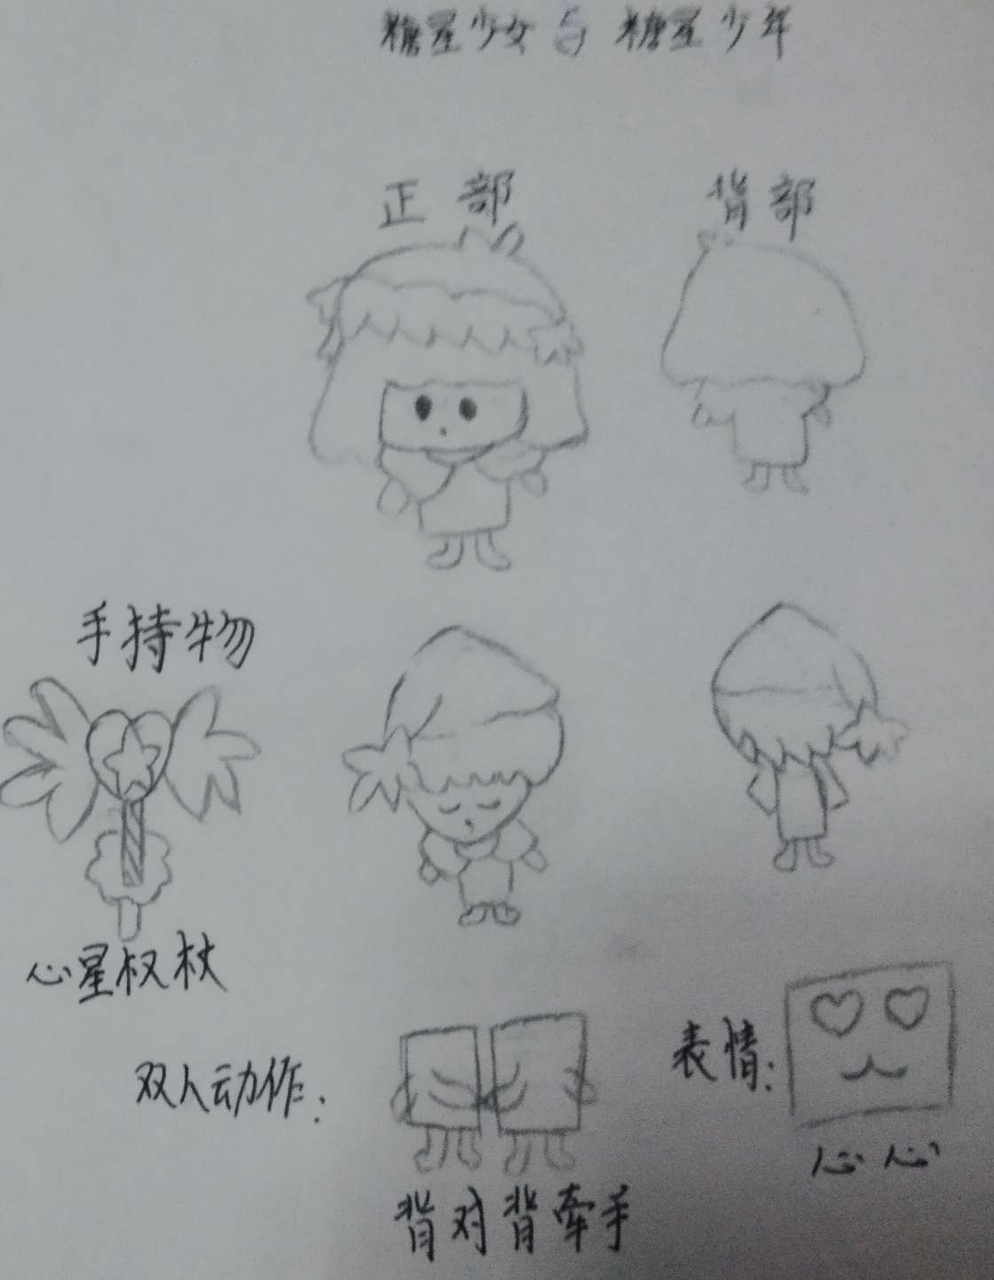 糖星少女与糖星少年
正部
背部
手持物
心星权杖
双人动作:
表情:
心心
背对背牵手